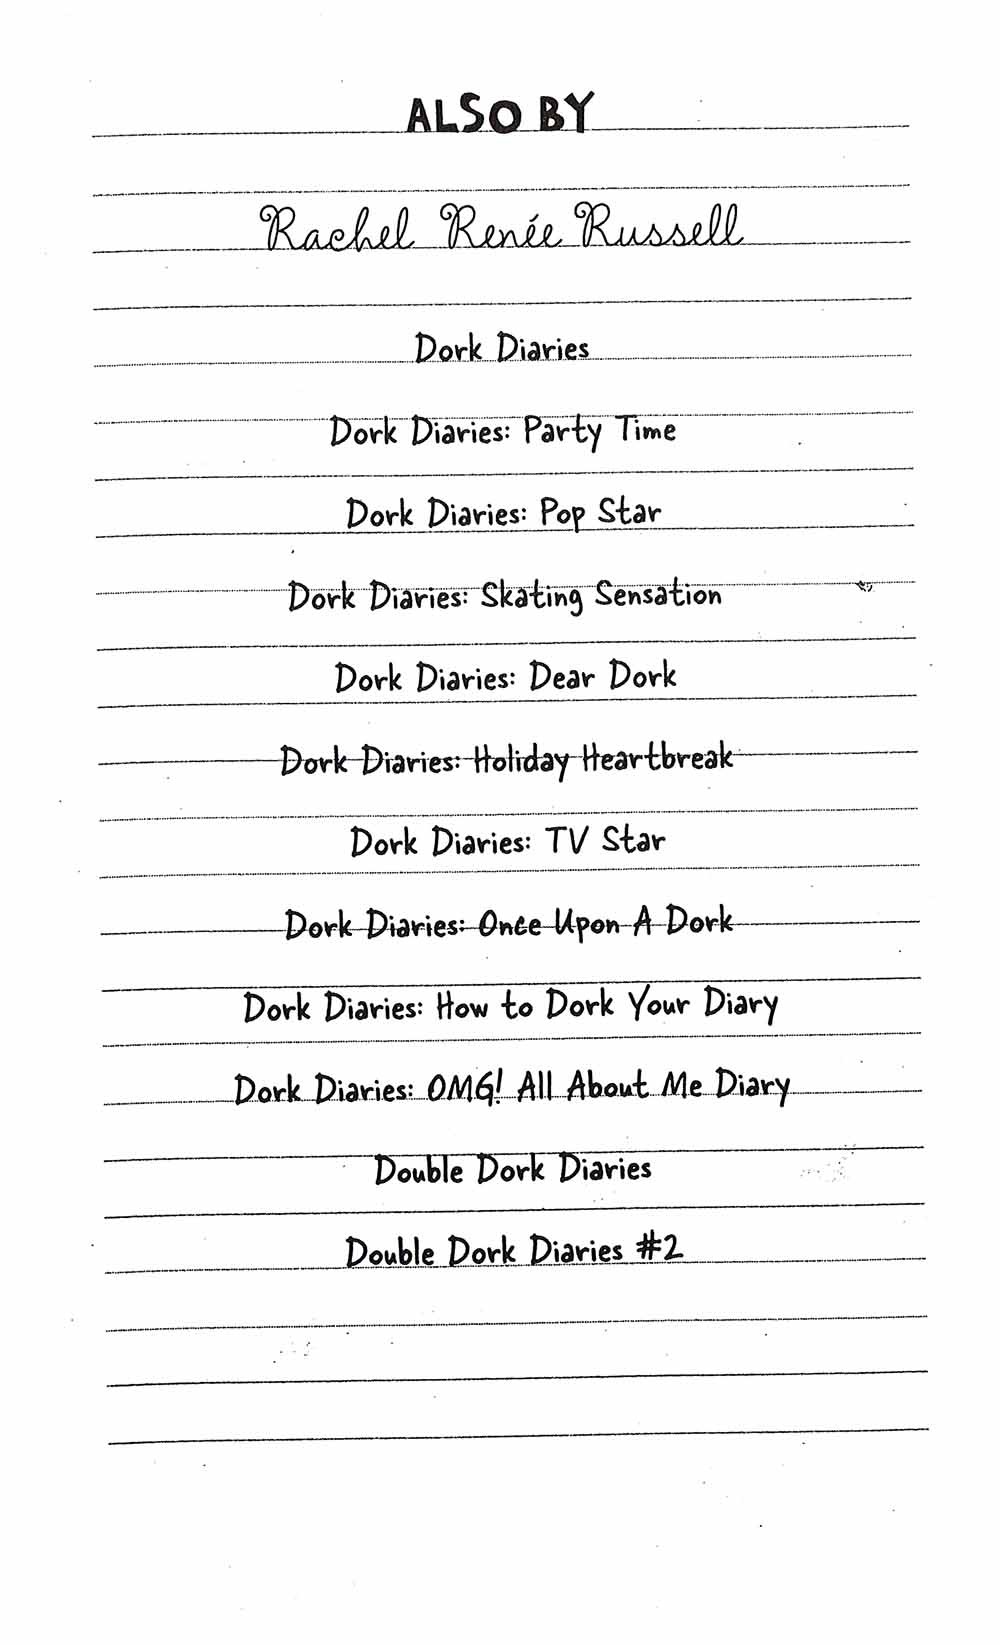 ALSO BY
Rachel Renée Russell
Dork Diaries
Dork Diaries: Party Time
Dork Diaries: Pop Star
Dork Diaries: Skating Sensation
Dork Diaries: Dear Dork
Dork Diaries: Holiday Heartbreak
Dork Diaries: TV Star
Dork Diaries: Once Upon A Dork
Dork Diaries: How to Dork Your Diary
Dork Diaries: OMG! All About Me Diary
Double Dork Diaries
Double Dork Diaries #2